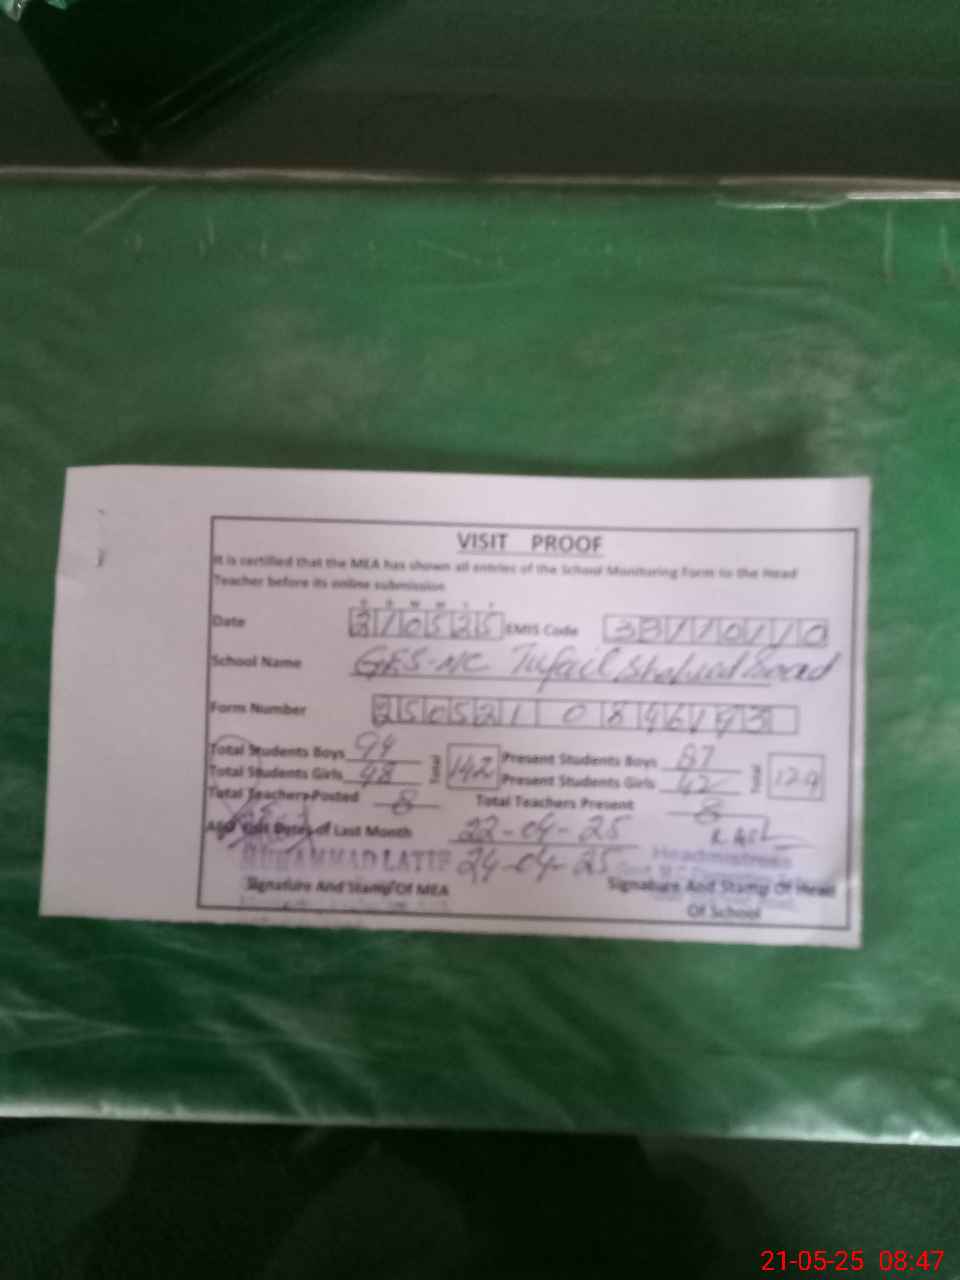 VISIT PROOF
It is certified that the MEA has shown all entries of the School Monitoring Form to the Head
Teacher before its online submission
Date 210525 EMIS Code 38110110
School Name GES-MC Tufail Shaheed Road
Form Number
Total Students Boys 94 Total 142 Present Students Boys 87 Total 129
Total Students Girls 48 Present Students Girls 42
Total Teachers Posted 8 Total Teachers Present 8
Visit Dates of Last Month 22-04-25
MUHAMMAD LATIF 24-04-25 Headmistress
Signature And Stamp Of MEA Signature And Stamp Of Head
Of School
21-05-25 08:47